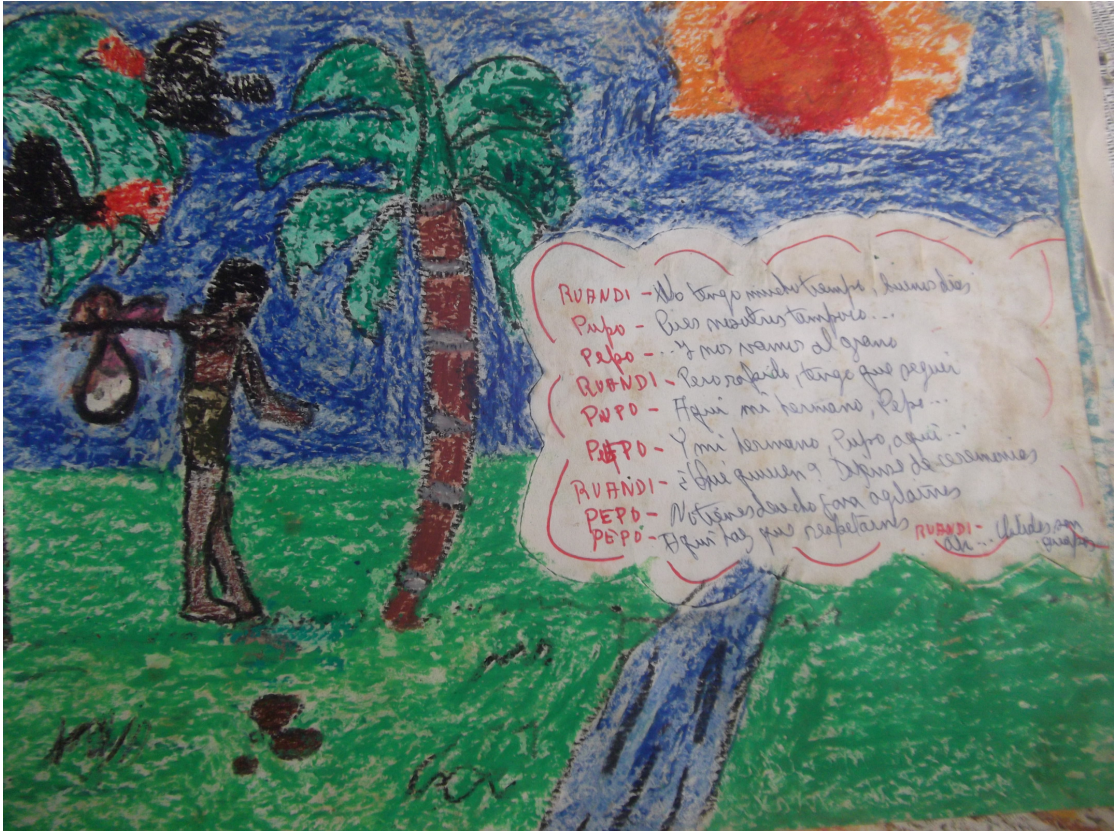 RUANDI - No tengo mucho tiempo, buenos días
Pupo - Pues nosotros tampoco...
Pepo - ...Y nos vamos al grano
RUANDI - Pero rápido, tengo que seguir
PUPO - Aquí mi hermano, Pepo...
PEPO - Y mi hermano, Pupo, aquí...
RUANDI - ¿Qué quieren? Déjense de ceremonias
PEPO - No tienes derecho para
PEPO - Aquí hay que respetarnos
RUANDI - Ah... Ustedes son